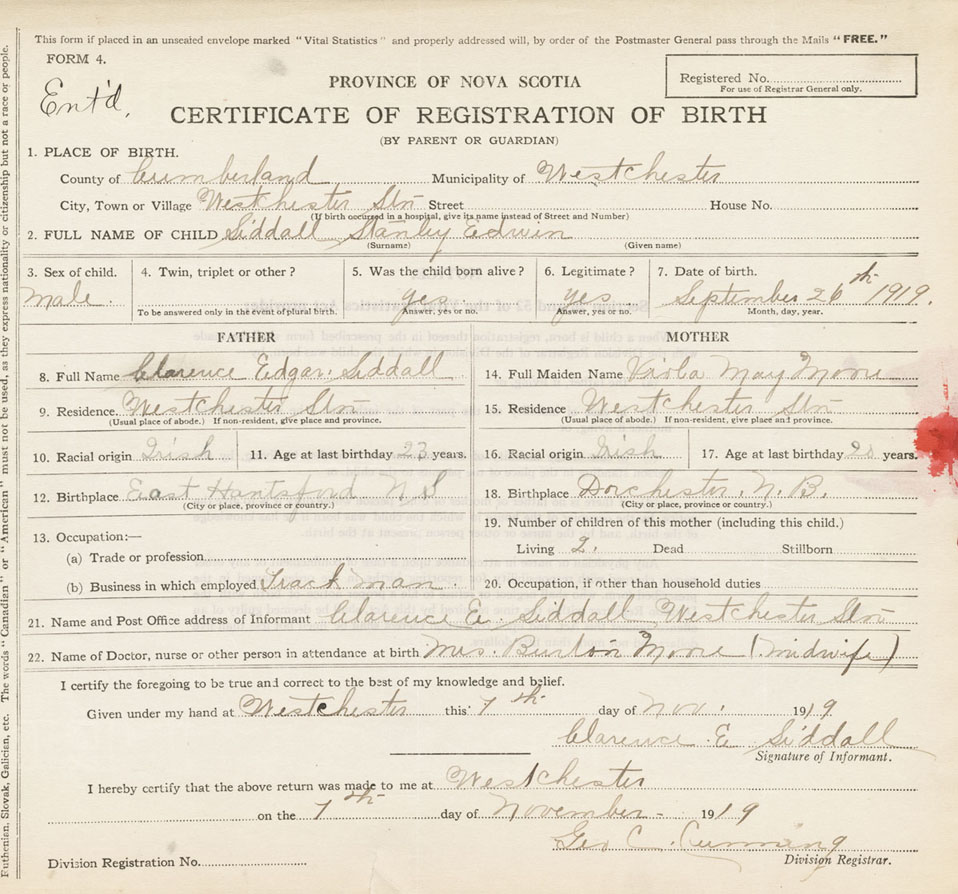 This form if placed in an unsealed envelope marked "Vital Statistics" and properly addressed will, by order of the Postmaster General pass through the Mails "FREE."
FORM 4.
Ent'd.
Registered No.
For use of Registrar General only.
PROVINCE OF NOVA SCOTIA
CERTIFICATE OF REGISTRATION OF BIRTH
(BY PARENT OR GUARDIAN)
1. PLACE OF BIRTH.
County of Cumberland Municipality of Westchester
City, Town or Village Westchester Stn Street House No.
(If birth occurred in a hospital, give its name instead of Street and Number)
2. FULL NAME OF CHILD Siddall Stanley Edwin
(Surname) (Given name)
3. Sex of child. 4. Twin, triplet or other? 5. Was the child born alive? 6. Legitimate? 7. Date of birth.
male. yes yes September 26th 1919.
To be answered only in the event of plural birth. Answer, yes or no. Answer, yes or no. Month, day, year.
FATHER MOTHER
8. Full Name Clarence Edgar Siddall 14. Full Maiden Name Viola May Moore
9. Residence Westchester Stn 15. Residence Westchester Stn
(Usual place of abode.) If non-resident, give place and province. (Usual place of abode.) If non-resident, give place and province.
10. Racial origin Irish 11. Age at last birthday 23 years. 16. Racial origin Irish 17. Age at last birthday 20 years.
12. Birthplace East Hantsford N S 18. Birthplace Dorchester, N.B.
(City or place, province or country.) (City or place, province or country.)
13. Occupation:— 19. Number of children of this mother (including this child.)
(a) Trade or profession Living 2. Dead Stillborn
(b) Business in which employed Track man. 20. Occupation, if other than household duties
21. Name and Post Office address of Informant Clarence E. Siddall Westchester Stn
22. Name of Doctor, nurse or other person in attendance at birth Mrs. Burton Moore (midwife)
I certify the foregoing to be true and correct to the best of my knowledge and belief.
Given under my hand at Westchester this 7th day of Nov. 1919.
Clarence E Siddall
Signature of Informant.
I hereby certify that the above return was made to me at Westchester
on the 7th day of November 1919
Geo C. Cumming
Division Registrar.
Division Registration No.
Ruthenian, Slovak, Galician, etc. The words "Canadian" or "American" must not be used, as they express nationality or citizenship but not a race or people.